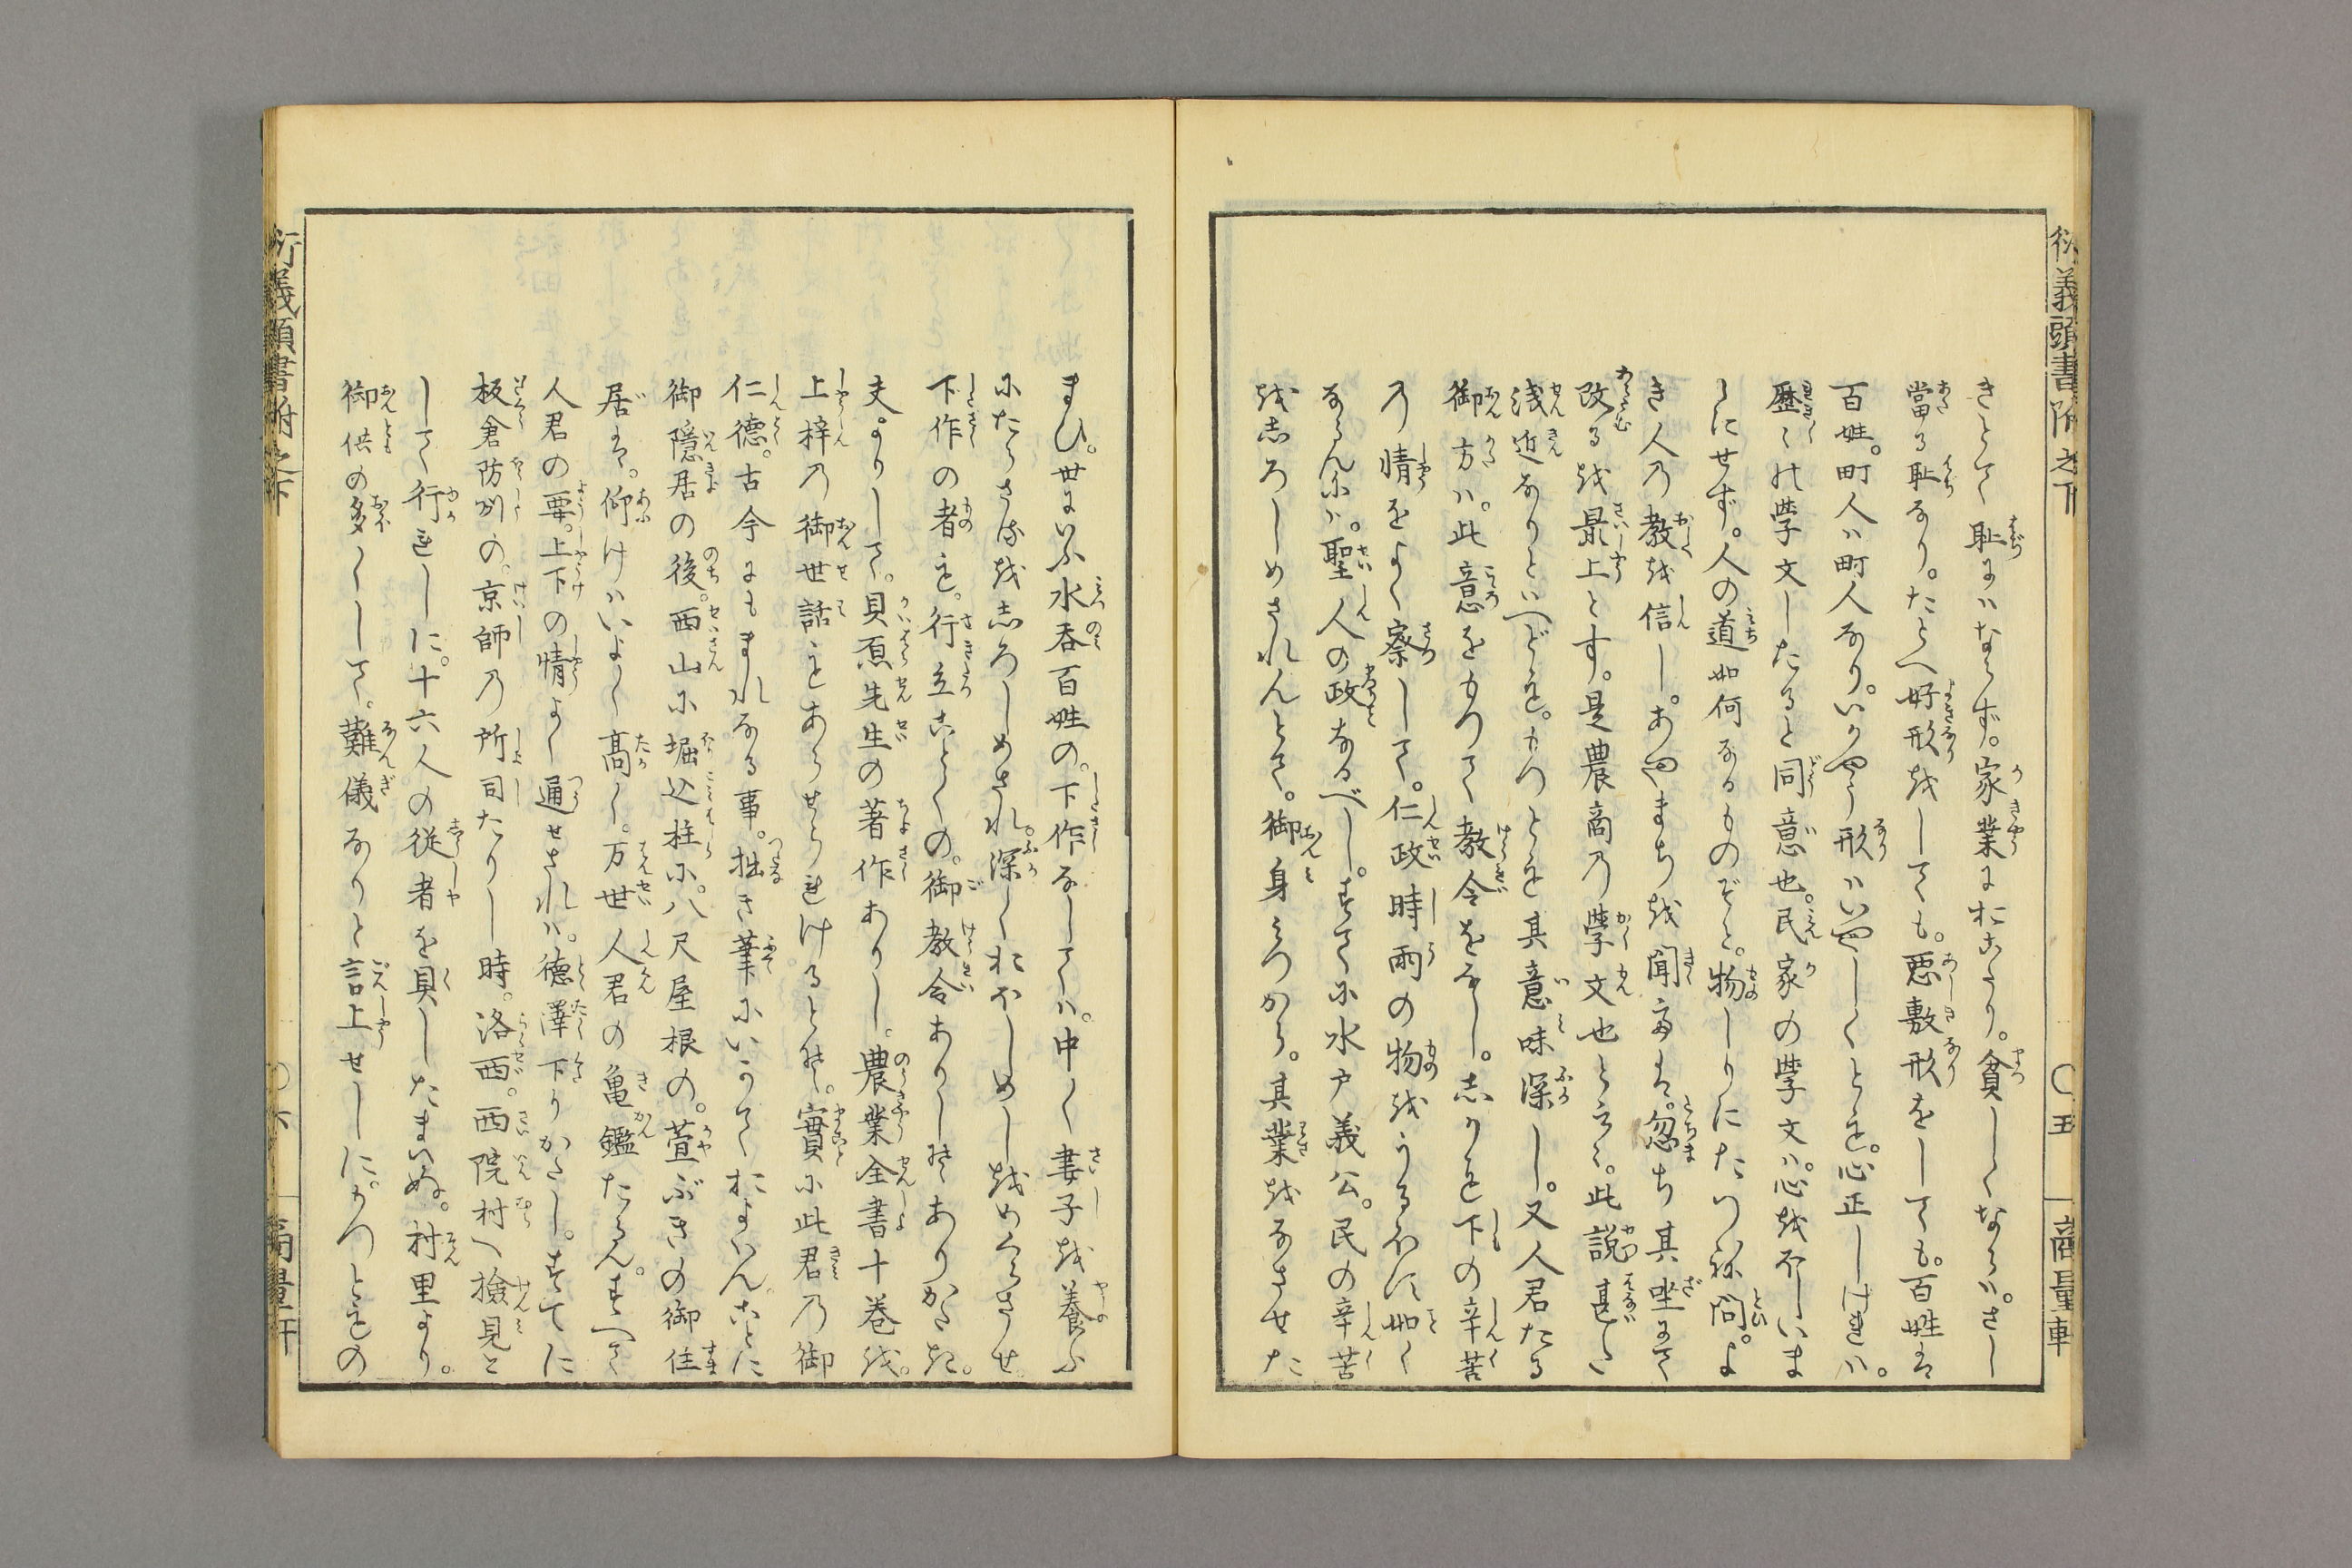 衍義頭書附之下 〇五 商量軒
きとて恥にハならず。家業におこたり。貧しくならハ。さし
當る恥なり。たとへ好形をしても。悪敷形をしても。百姓は
百姓。町人ハ町人なり。いかやう形ハいやしくとも。心正しければハ。
歴〻の学文したると同意也。民家の学文ハ。心をなしいま
しにせず。人の道如何なるものぞと。物しりにたづね問。よ
き人の教を信し。あやまちを聞ては。忽ち其坐にて
改るを最上とす。是農商の学文也と云〻。此説甚た
浅近なりといへども。もつとも其意味深し。又人君たる
御方ハ。此意をもつて教令をなし。しかも下の辛苦
の情をよく察して。仁政時雨の物をうるほす如く
ならんにハ。聖人の政なるべし。すてに水戸義公。民の辛苦
をしろしめされんとて。御身みつから。其業をなさせた
まひ。世にいふ水呑百姓の。下作なしてハ。中〻妻子を養ふ
にたらさるをしろしめされ。深くおほしめしをめくらさせ
下作の者も。行立ことくの。御教令ありしそありかたき。
夫よりして。貝原先生の著作ありし。農業全書十巻を。
上梓の御世話もあらせられけるとそ。實に此君の御
仁徳。古今にもまれなる事。拙き筆にいかておよはん。ことに
御隠居の後。西山に堀込柱に。八尺屋根の。萱ぶきの御住
居は。仰けハいよ〳〵高く。万世人君の亀鑑たらん。すへて
人君の要。上下の情よく通せされハ。徳澤下りかたし。すてに
板倉防州の。京師の所司たりし時。洛西。西院村へ撿見と
して行れしに。十六人の従者を具したまいぬ。村里より。
御供の多くして。難儀なりと言上せしに。かつともの
衍義頭書附之下 〇六 商量軒